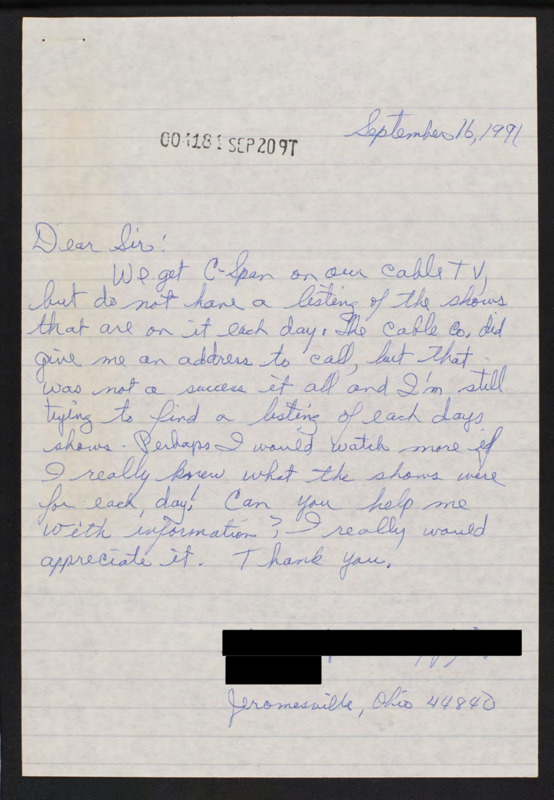 September 16, 1991
004181 SEP209T
Dear Sir:
We get C-Span on our cable TV,
but do not have a listing of the shows
that are on it each day. The cable Co. did
give me an address to call, but that
was not a success it all and I'm still
trying to find a listing of each days
shows. Perhaps I would watch more if
I really knew what the shows were
for each day! Can you help me
with information? I really would
appreciate it. Thank you.
Jeromesville, Ohio 44840